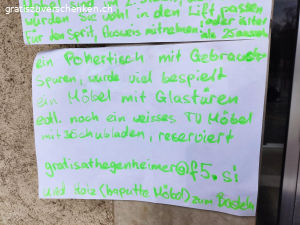 gratiszuverschenken.ch
würden Sie wohl in den Lift passen
Für den Sprit, Ausweis mitnehmen, älter als 25
ein Pokertisch mit Gebrauchs
Spuren, wurde viel bespielt
ein Möbel mit Glastüren
edl. noch ein weisses TV Möbel
mit 3 Schubladen, reserviert
gratisathegenheimer@f5.si
und Holz (kaputte Möbel) zum Basteln